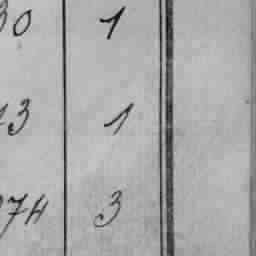 30 1
13 1
274 3